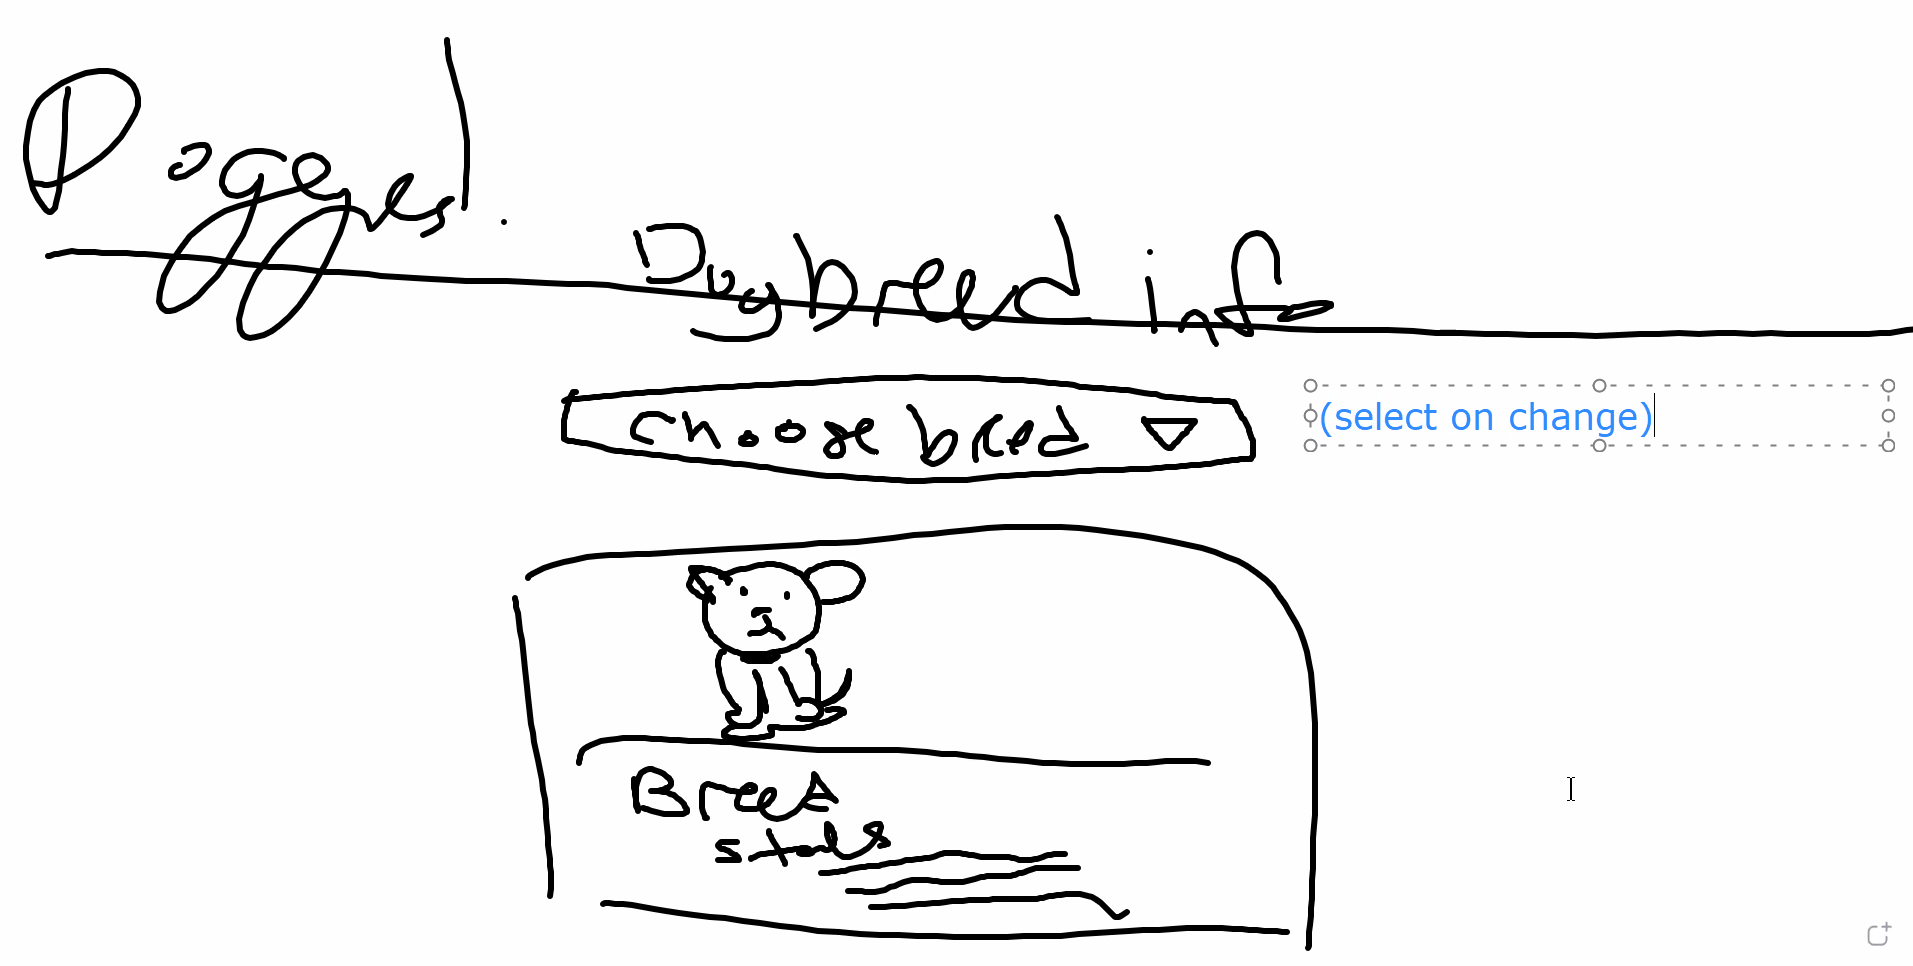 Doggys!
Dog breed info
Choose breed
(select on change)
Breed
stats